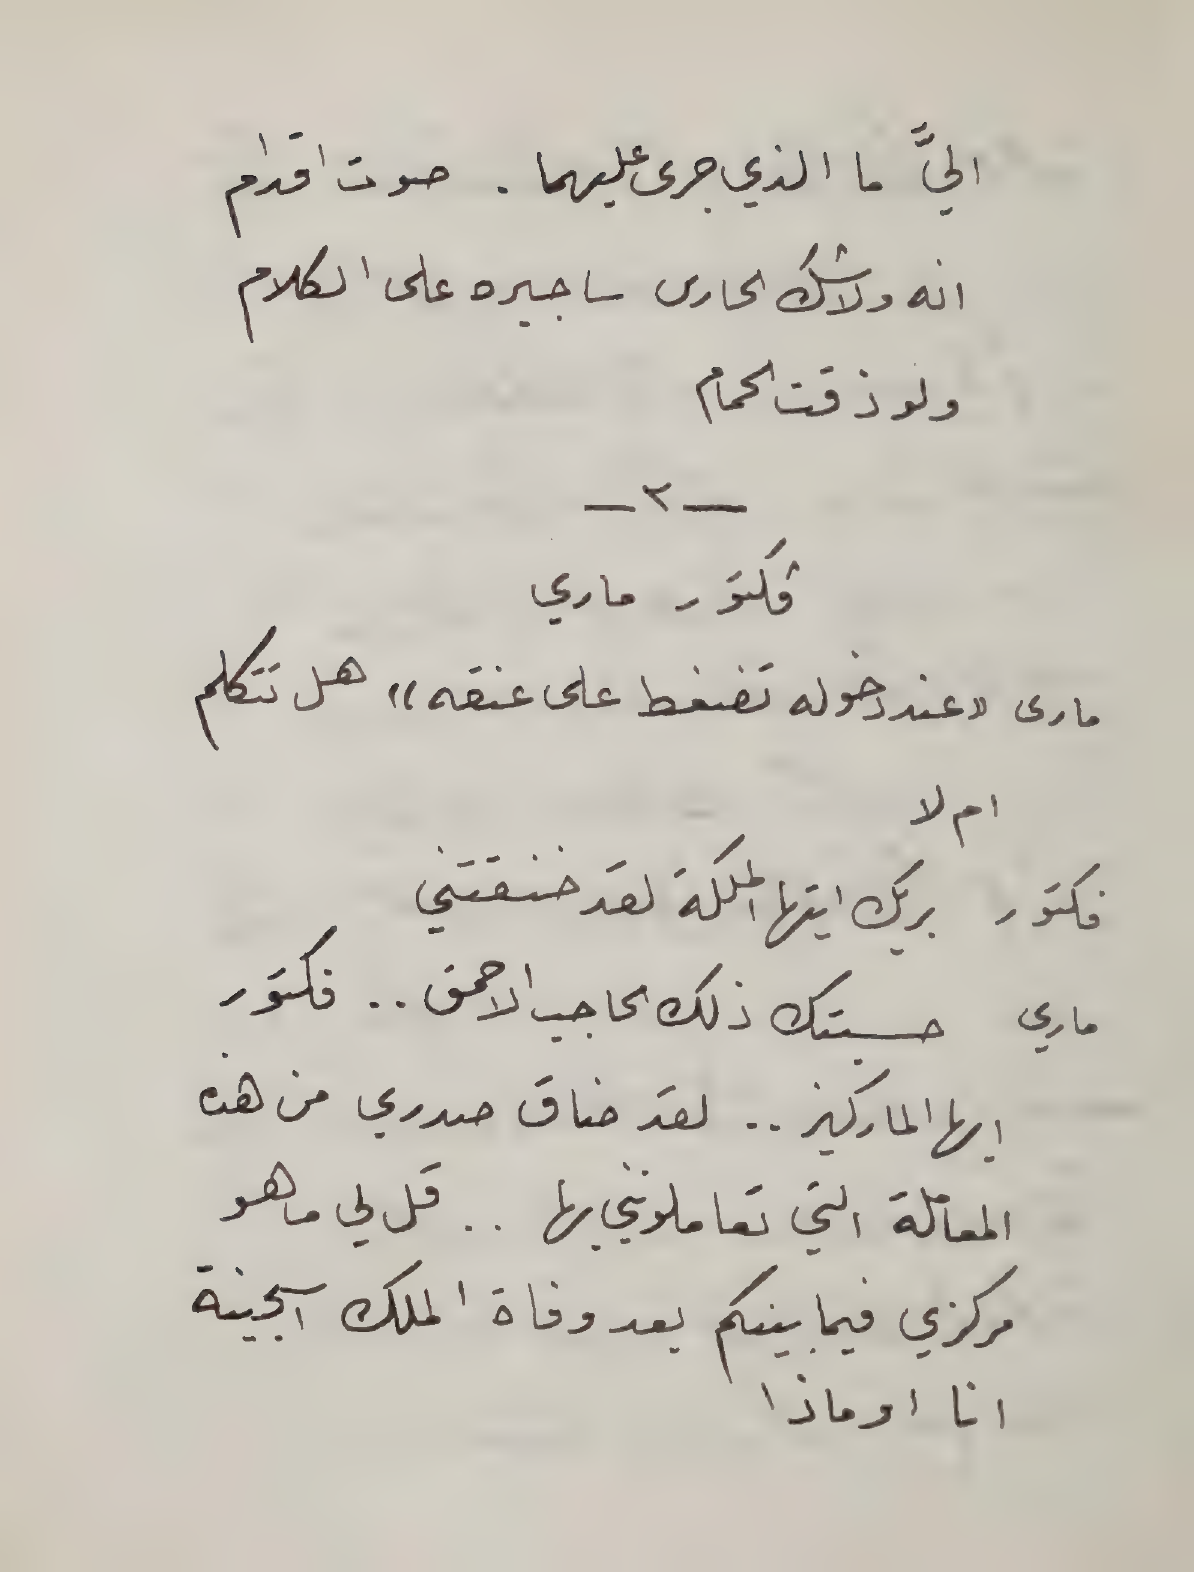 اليَّ ما الذي جرى عليهما . صوت اقدام
انه ولاشك الحارس ساجبره على الكلام
ولو ذقت الحمام
— ٢ —
ڤكتور ماري
مارى «عند دخوله تضغط على عنقه» هل تتكلم
ام لا
فكتور بربك ايتها الملكة لقد خنقتني
ماري حسبتك ذلك الحاجب الاحمق .. فكتور
ايها الماركيز .. لقد ضاق صدري من هذه
المعاملة التي تعاملونني بها .. قل لي ما هو
مركزي فيما بينكم بعد وفاة الملك آسجينة
انا او ماذا